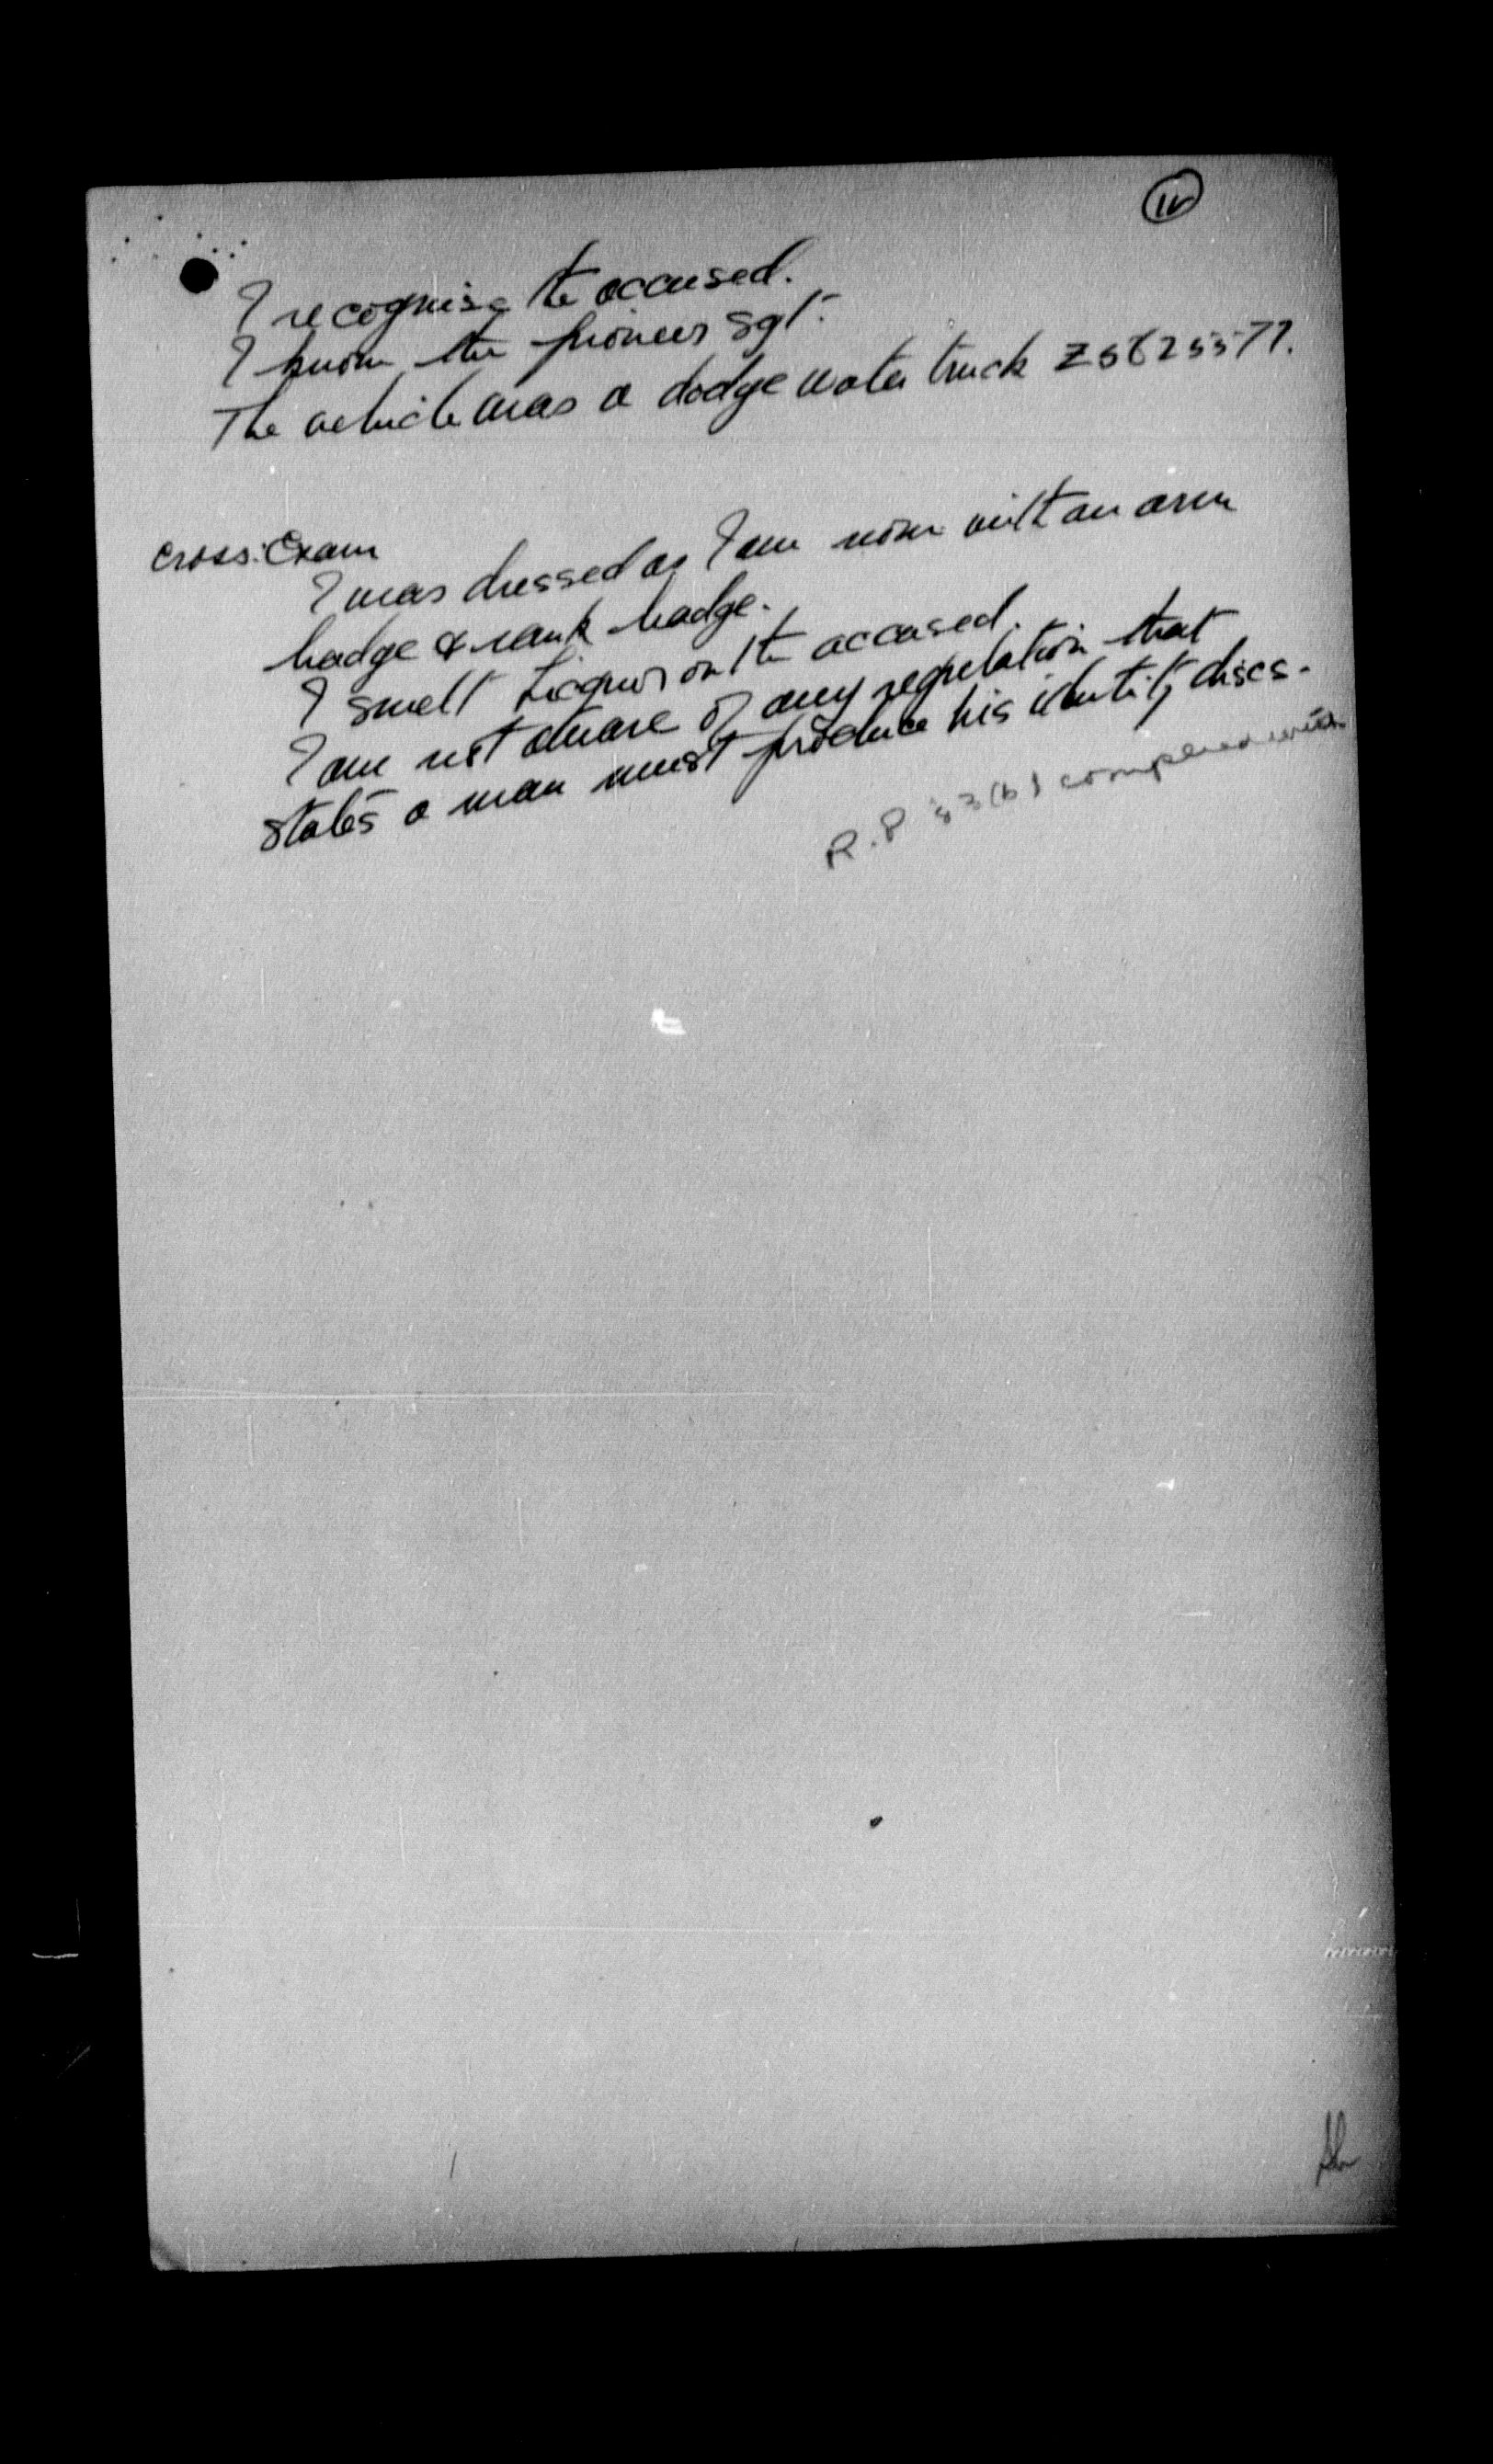 I recognise the accused.
I know the pioneer sgt.
The vehicle was a dodge water truck Z5625577.
Cross: Exam
I was dressed as I am now with an arm
badge & rank badge.
I smelt Liquor on the accused.
I am not aware of any regulation that
states a man must produce his identity discs.
R.P 83(b) complied with